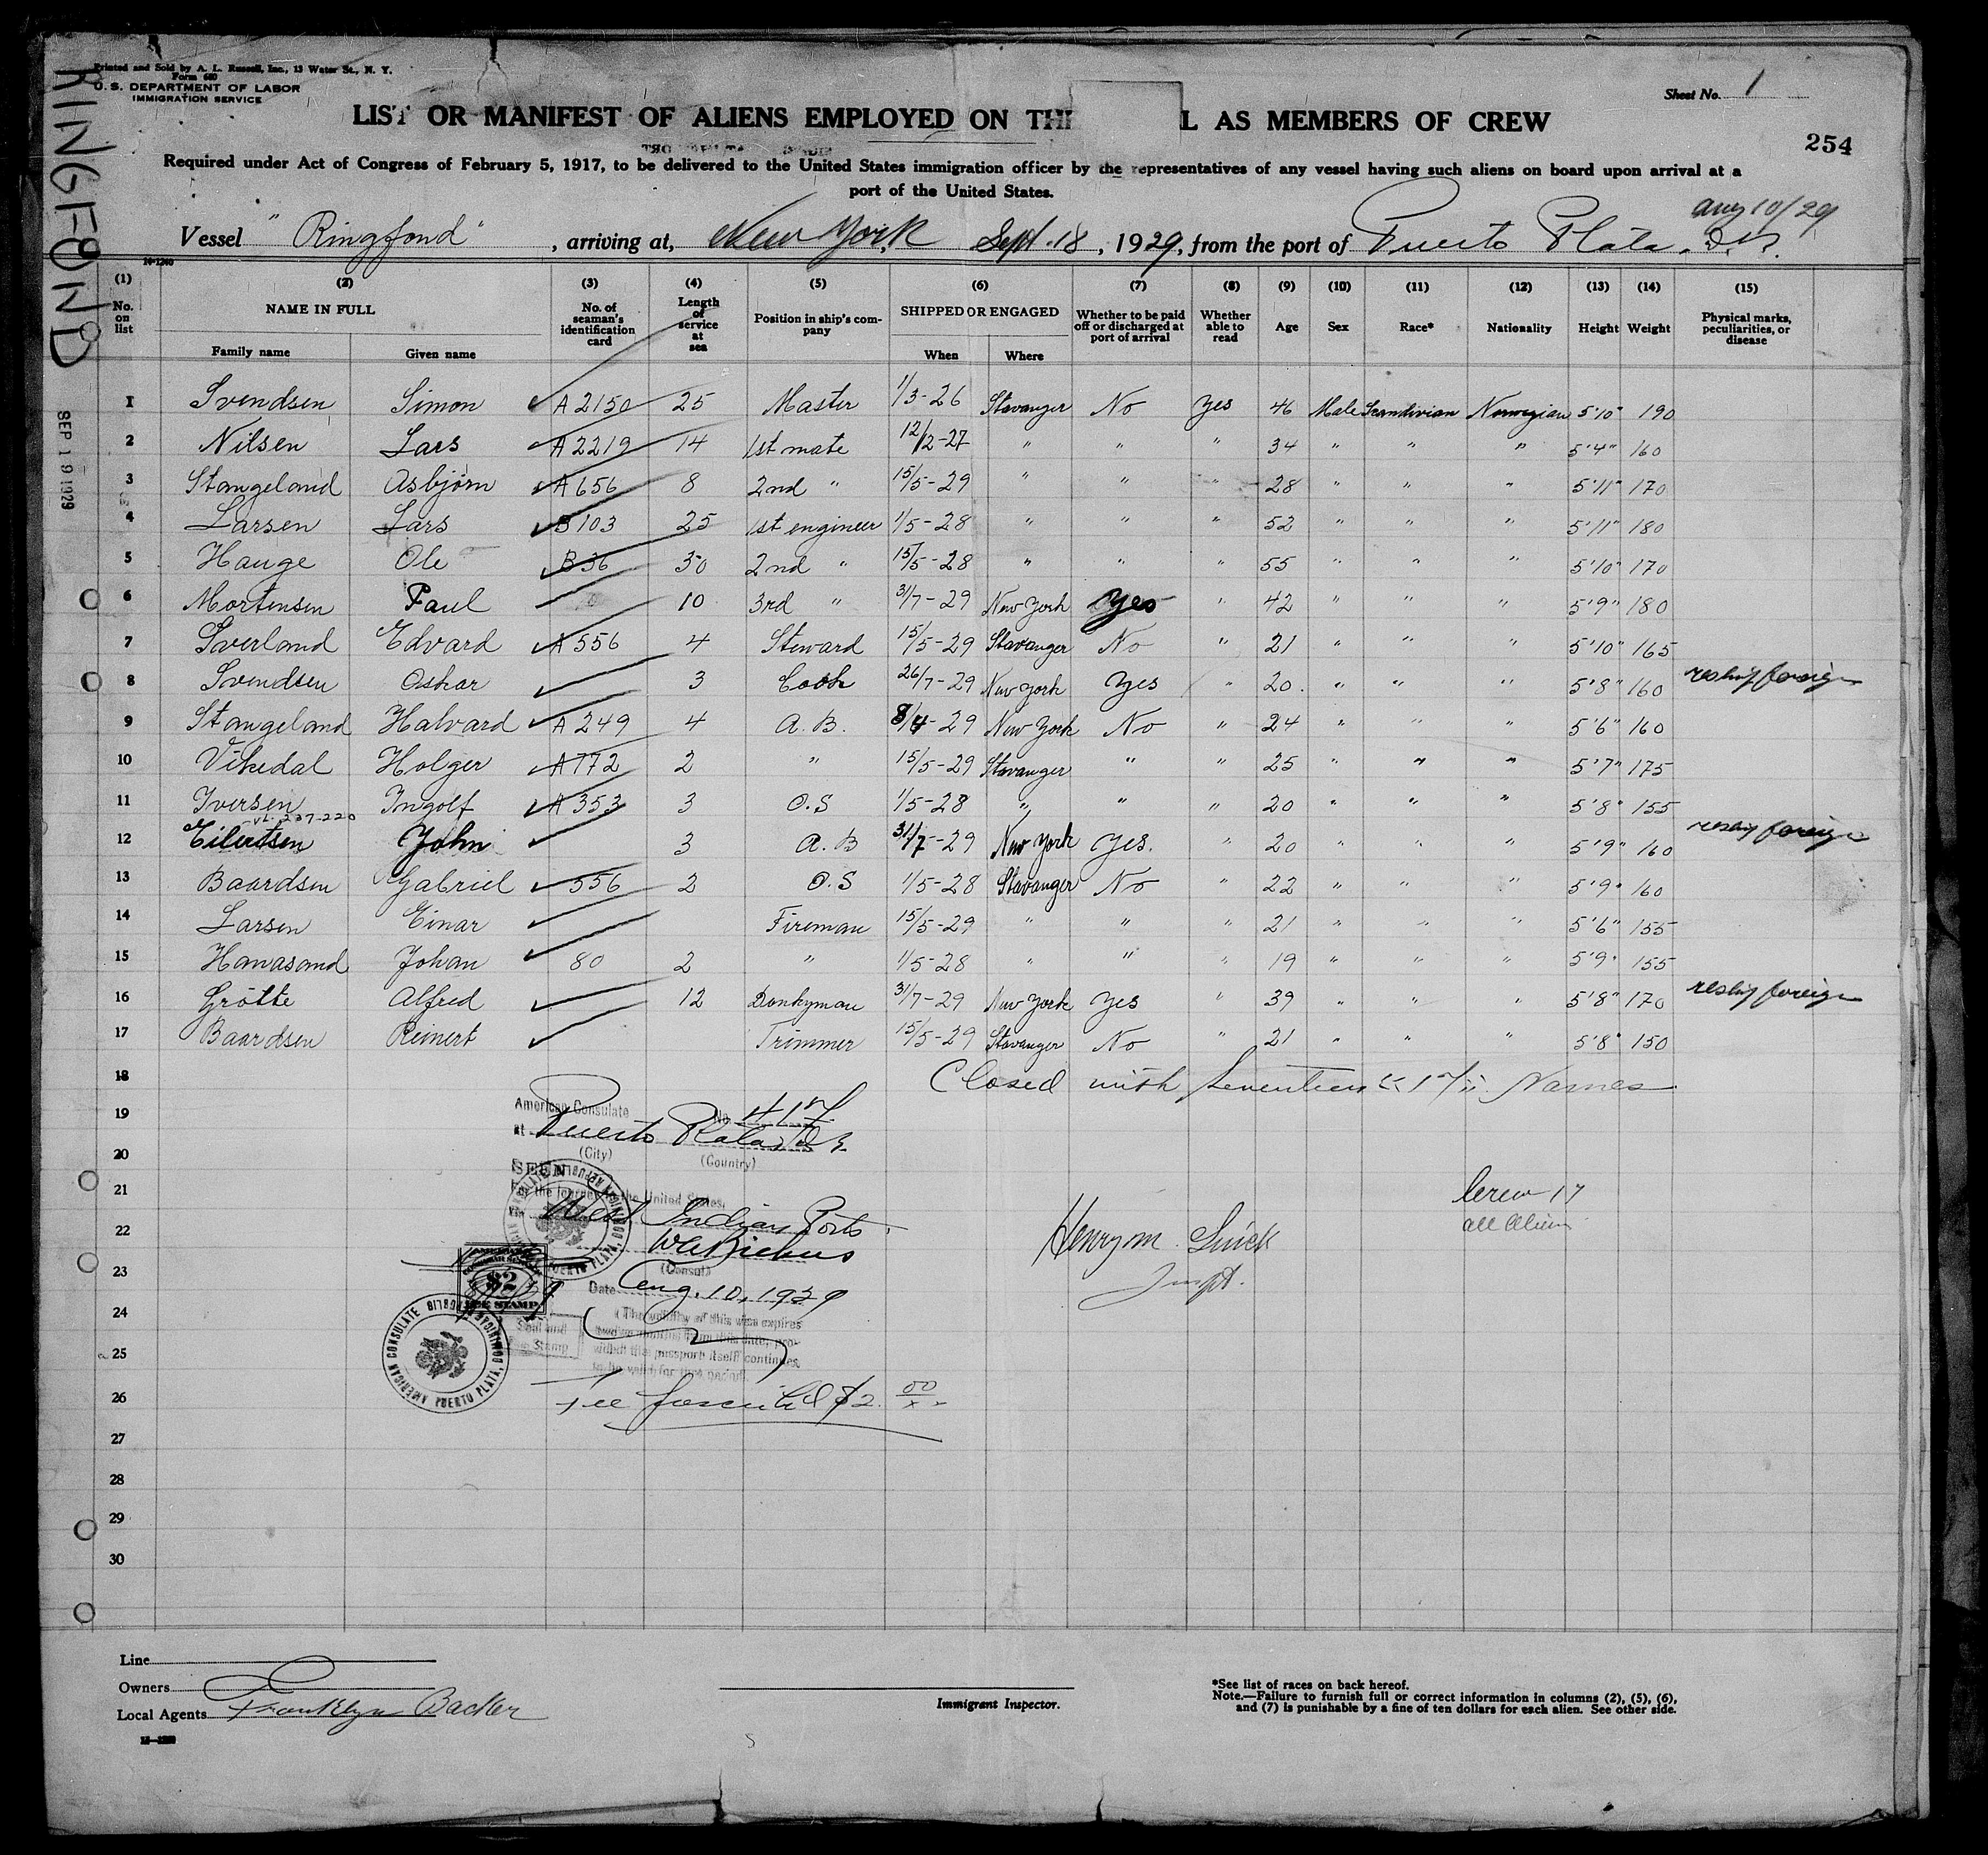 Printed and Sold by A. L. Russell, Inc., 13 Water St., N. Y.
Form 680
U. S. DEPARTMENT OF LABOR
IMMIGRATION SERVICE
Sheet No. 1
LIST OR MANIFEST OF ALIENS EMPLOYED ON TH L AS MEMBERS OF CREW
254
Required under Act of Congress of February 5, 1917, to be delivered to the United States immigration officer by the representatives of any vessel having such aliens on board upon arrival at a
port of the United States.
Aug 10/29
Vessel "Ringfond", arriving at, New York Sept. 18, 1929, from the port of Puerto Plata, D.R.
RINGFOND
SEP 19 1929
(1) (2) (3) (4) (5) (6) (7) (8) (9) (10) (11) (12) (13) (14) (15)
No. on list NAME IN FULL No. of seaman's identification card Length of service at sea Position in ship's company SHIPPED OR ENGAGED Whether to be paid off or discharged at port of arrival Whether able to read Age Sex Race* Nationality Height Weight Physical marks, peculiarities, or disease
Family name Given name When Where
1 Svendsen Simon A2150 25 Master 1/3-26 Stavanger No Yes 46 Male Scandivian Norwegian 5'10" 190
2 Nilsen Lars A2219 14 1st mate 12/2-27 " " " 34 " " " 5'4" 160
3 Stangeland Asbjörn A656 8 2nd " 15/5-29 " " " 28 " " " 5'11" 170
4 Larsen Lars B103 25 1st engineer 1/5-28 " " " 52 " " " 5'11" 180
5 Hauge Ole B36 30 2nd " 15/5-28 " " " 55 " " " 5'10" 170
6 Mortensen Paul 10 3rd " 31/7-29 New York Yes " 42 " " " 5'9" 180
7 Sverland Edvard A556 4 Steward 15/5-29 Stavanger No " 21 " " " 5'10" 165
8 Svendsen Oskar 3 Cook 26/7-29 New York Yes " 20 " " " 5'8" 160 reship foreign
9 Stangeland Halvard A249 4 A.B. 8/4-29 New York No " 24 " " " 5'6" 160
10 Vikedal Holger A772 2 " 15/5-29 Stavanger " " 25 " " " 5'7" 175
11 Iversen Ingolf A353 3 O.S 1/5-28 " " " 20 " " " 5'8" 155
12 Eilertsen John 3 A.B 31/7-29 New York Yes. " 20 " " " 5'9" 160 reship foreign
13 Baardsen Gabriel 556 2 O.S 1/5-28 Stavanger No " 22 " " " 5'9" 160
14 Larsen Einar Fireman 15/5-29 " " " 21 " " " 5'6" 155
15 Hanasand Johan 80 2 " 1/5-28 " " " 19 " " " 5'9" 155
16 Grötte Alfred 12 Donkyman 31/7-29 New York Yes " 39 " " " 5'8" 170 reship foreign
17 Baardsen Reinert Trimmer 15/5-29 Stavanger No " 21 " " " 5'8" 150
18 Closed with Seventeen "17" Names
19 American Consulate No. 417
at Puerto Plata
20 (City) (Country)
SEEN
21 For the journey to the United States,
Crew 17
all Aliens
22 via West Indian Ports
Henry M.
Inspt.
23 (Consul)
Date Aug. 10, 1929
$2
FEE STAMP
24 (The validity of this visa expires
twelve months from this date, provided the passport itself continues
to be valid for that period.
Seal and
Stamp
25
AMERICAN CONSULATE PUERTO PLATA, DOMINICAN REPUBLIC
26 Fee \$2.00
27
28
29
30
Line
Owners
Local Agents Franklyn Backer
Immigrant Inspector.
*See list of races on back hereof.
Note.—Failure to furnish full or correct information in columns (2), (5), (6),
and (7) is punishable by a fine of ten dollars for each alien. See other side.